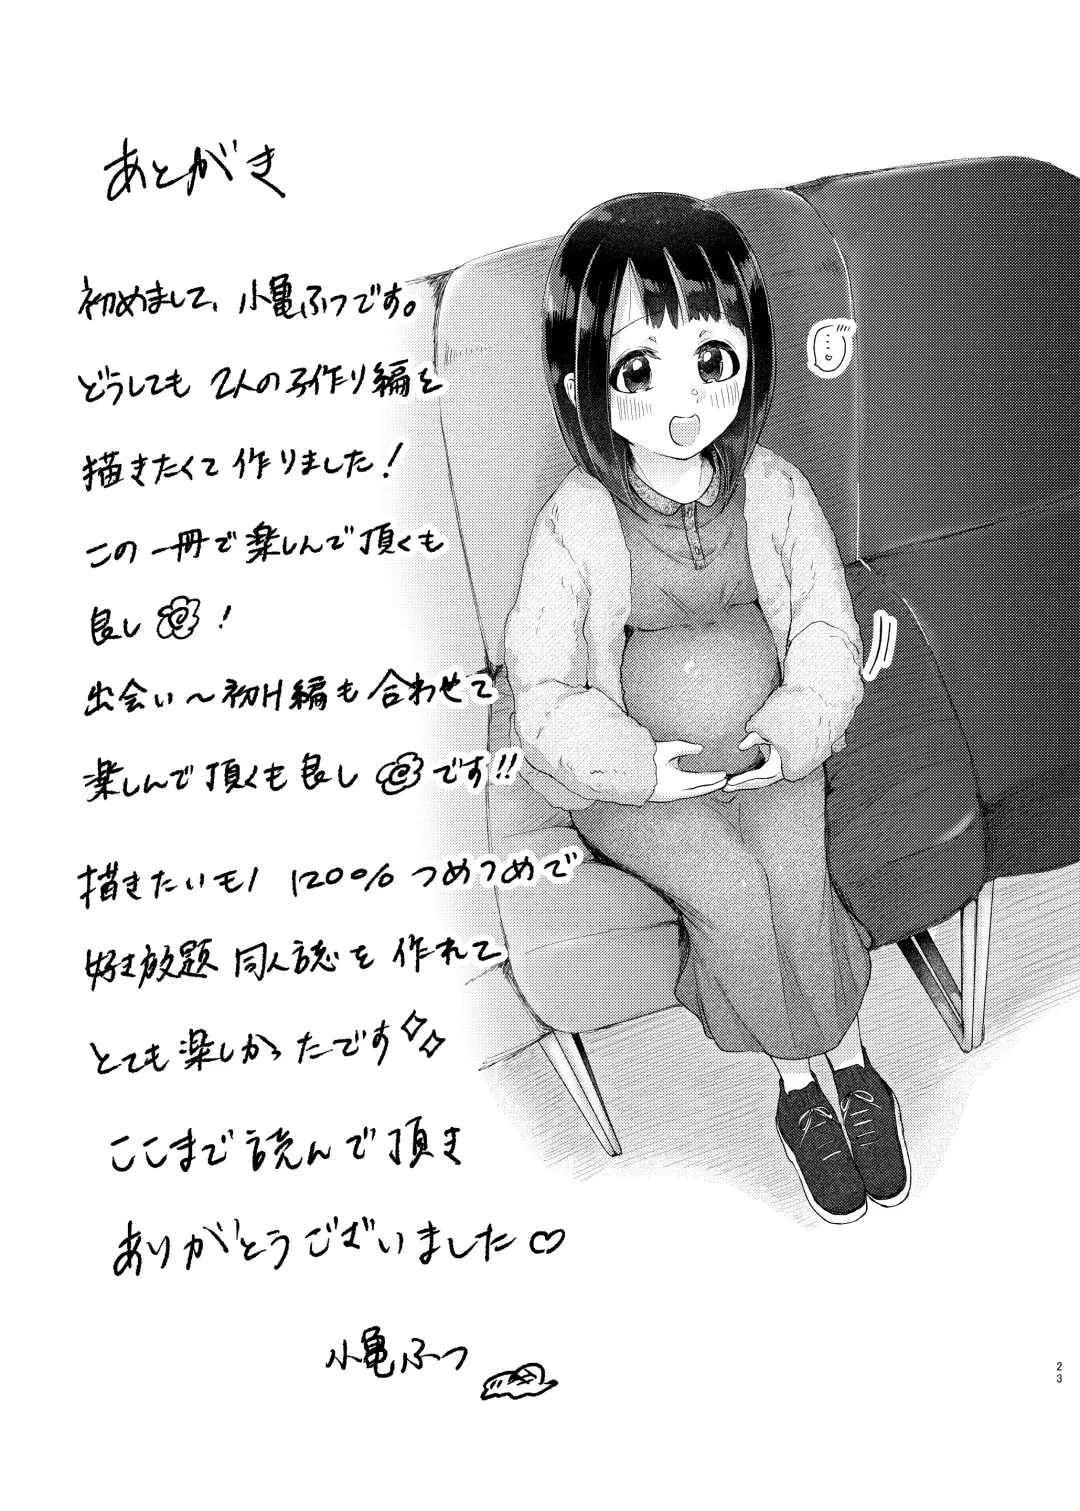 あとがき
初めまして、小亀ふつです。
どうしても2人の子作り編を
描きたくて作りました！
この一冊で楽しんで頂くも
良し！
出会い～初H編も合わせて
楽しんで頂くも良しです!!
描きたいモノ120%つめつめで
好き放題同人誌を作れて
とても楽しかったです
ここまで読んで頂き
ありがとうございました♡
小亀ふつ
…♡
23